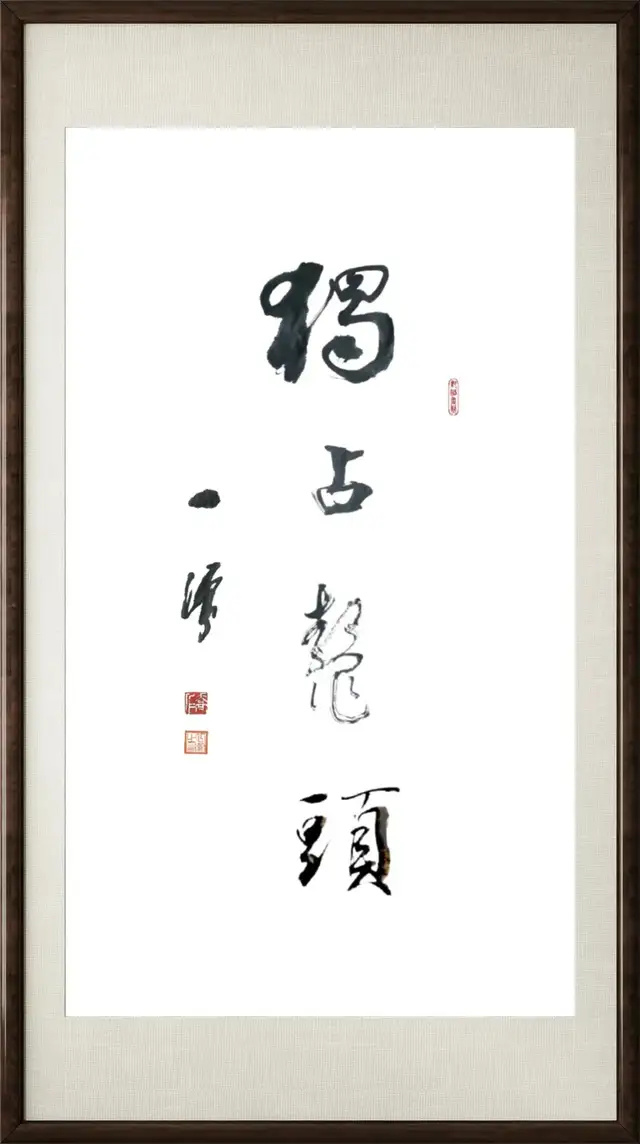 獨占鼇頭
一